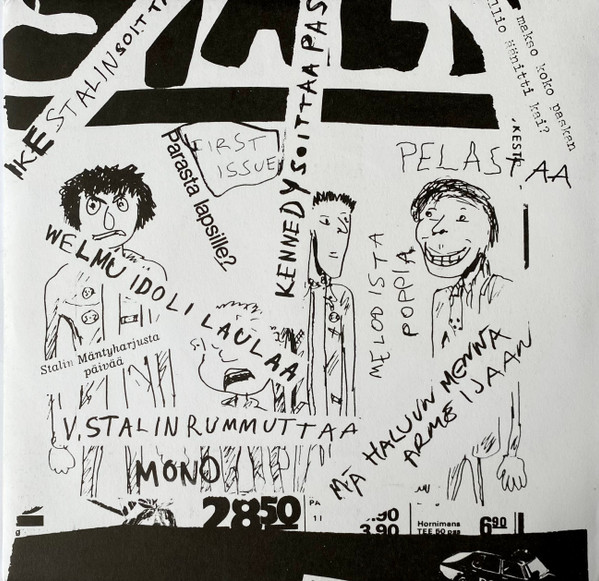 STALI
IKE STALIN SOITTA
KENNEDY SOITTAA PAS
makso koko paskan
llio äänitti kai?
KESTI
FIRST
ISSUE
Parasta lapsille?
PELASTAA
WELMU IDOLI LAULAA
MELODISTA
POPPIA
Stalin Mäntyharjusta
päivää
V, STALIN RUMMUTTAA
MÄ HALUUN MENNA
ARMEIJAAN
MONO
2850
PA
11
.90
3.90
Hornimans
TEE 50 pss
6.90
g